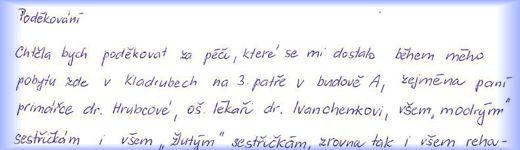 Poděkování
Chtěla bych poděkovat za péči, které se mi dostalo během mého
pobytu zde v Kladrubech na 3. patře v budově A, zejména paní
primářce dr. Hrubcové, oš. lékaři dr. Ivanchenkovi, všem „modrým"
sestřičkám i všem „žlutým" sestřičkám, zrovna tak i všem reha-